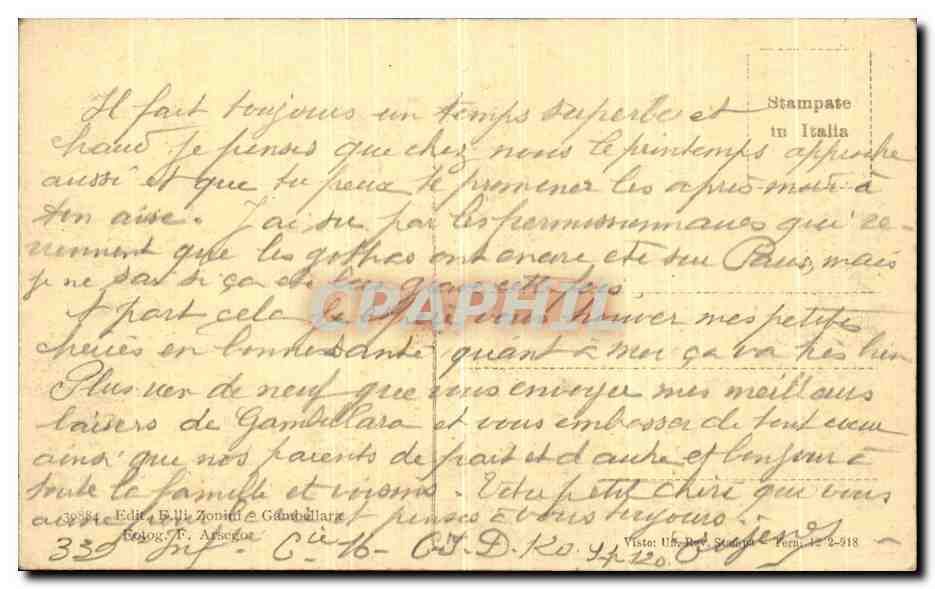 Il fait toujours un temps superbe et
Stampate
in Italia
chaud je penses que chez nous le printemps approche
aussi et que tu peux te promener les après-midi à
ton aise. J'ai su par les permissionnaires qui re-
viennent que les gothas ont encore été sur Paris, mais
je ne sai si ça été bien grave cette fois.
CPARHIL
A part cela je vous trouver mes petites
cheries en bonne santé quant à moi ça va très bien
Plus rien de neuf que vous envoyer mes meilleurs
baisers de Gambellara et vous embrasser de tout cœur
ainsi que nos parents de part et d'autre et bonjour à
toute la famille et voisins. Votre petit cheri qui vous
aime et penses à vous toujours.
39884 - Edit. F.lli Zonini - Gambellara
Fotog. F. Arsegor
Visto: Uff. Rev. Stampa - Vera; 12-2-918
339 Inf. Cie 16 - S.P. 120. Eugene